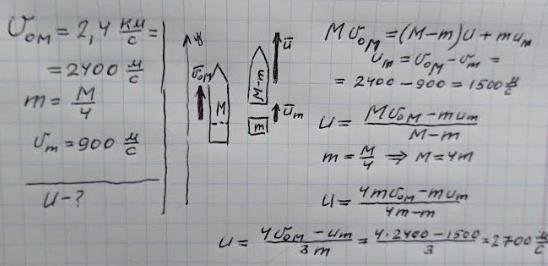 υ₀ₘ = 2,4 км/с =
= 2400 м/с
m = M/4
υₘ = 900 м/с
u - ?
y
ῡ₀ₘ
M
ū
M-m
ūₘ
m
Mυ₀ₘ = (M-m)u + muₘ
uₘ = υ₀ₘ - υₘ =
= 2400 - 900 = 1500 м/с
u = (Mυ₀ₘ - muₘ)/(M-m)
m = M/4 ⇒ M = 4m
u = (4mυ₀ₘ - muₘ)/(4m-m)
u = (4υ₀ₘ - uₘ)/(3m) = (4·2400 - 1500)/3 = 2700 м/с